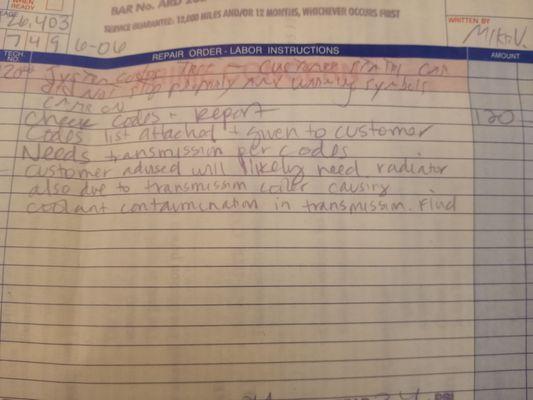 BAR No. ARD
SERVICE GUARANTEE: 12,000 MILES AND/OR 12 MONTHS, WHICHEVER OCCURS FIRST
WHEN READY
26,403
WRITTEN BY
Mike V.
749 6-06
TECH. NO.
REPAIR ORDER - LABOR INSTRUCTIONS
AMOUNT
System Customer states car
did not stop properly and warning symbols
came on
Check Codes - Report
120
Codes list attached + given to customer
Needs transmission per codes
customer advised will likely need radiator
also due to transmission cooler causing
coolant contamination in transmission. Fluid